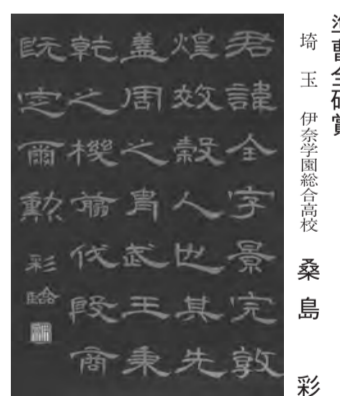 埼玉 伊奈学園総合高校 桑島 彩
君諱全字景完敦
煌效穀人也其先
蓋周之胄武王秉
乾之機翦伐殷商
既定爾勲 彩臨